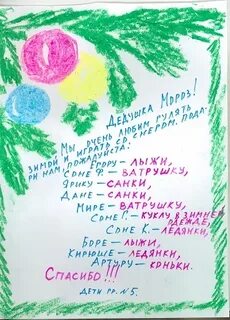 Дедушка Мороз!
Мы очень любим гулять
зимой и играть со снегом. Пода-
ри нам, пожалуйста:
Егору – лыжи,
Соне Р. – ватрушку,
Ярику – санки,
Дане – санки,
Мире – ватрушку,
Соне Г. – куклу в зимней
одежде,
Соне К. – ледянки,
Боре – лыжи,
Кирюше – ледянки,
Артуру – коньки.
Спасибо!!!
Дети гр. №5.